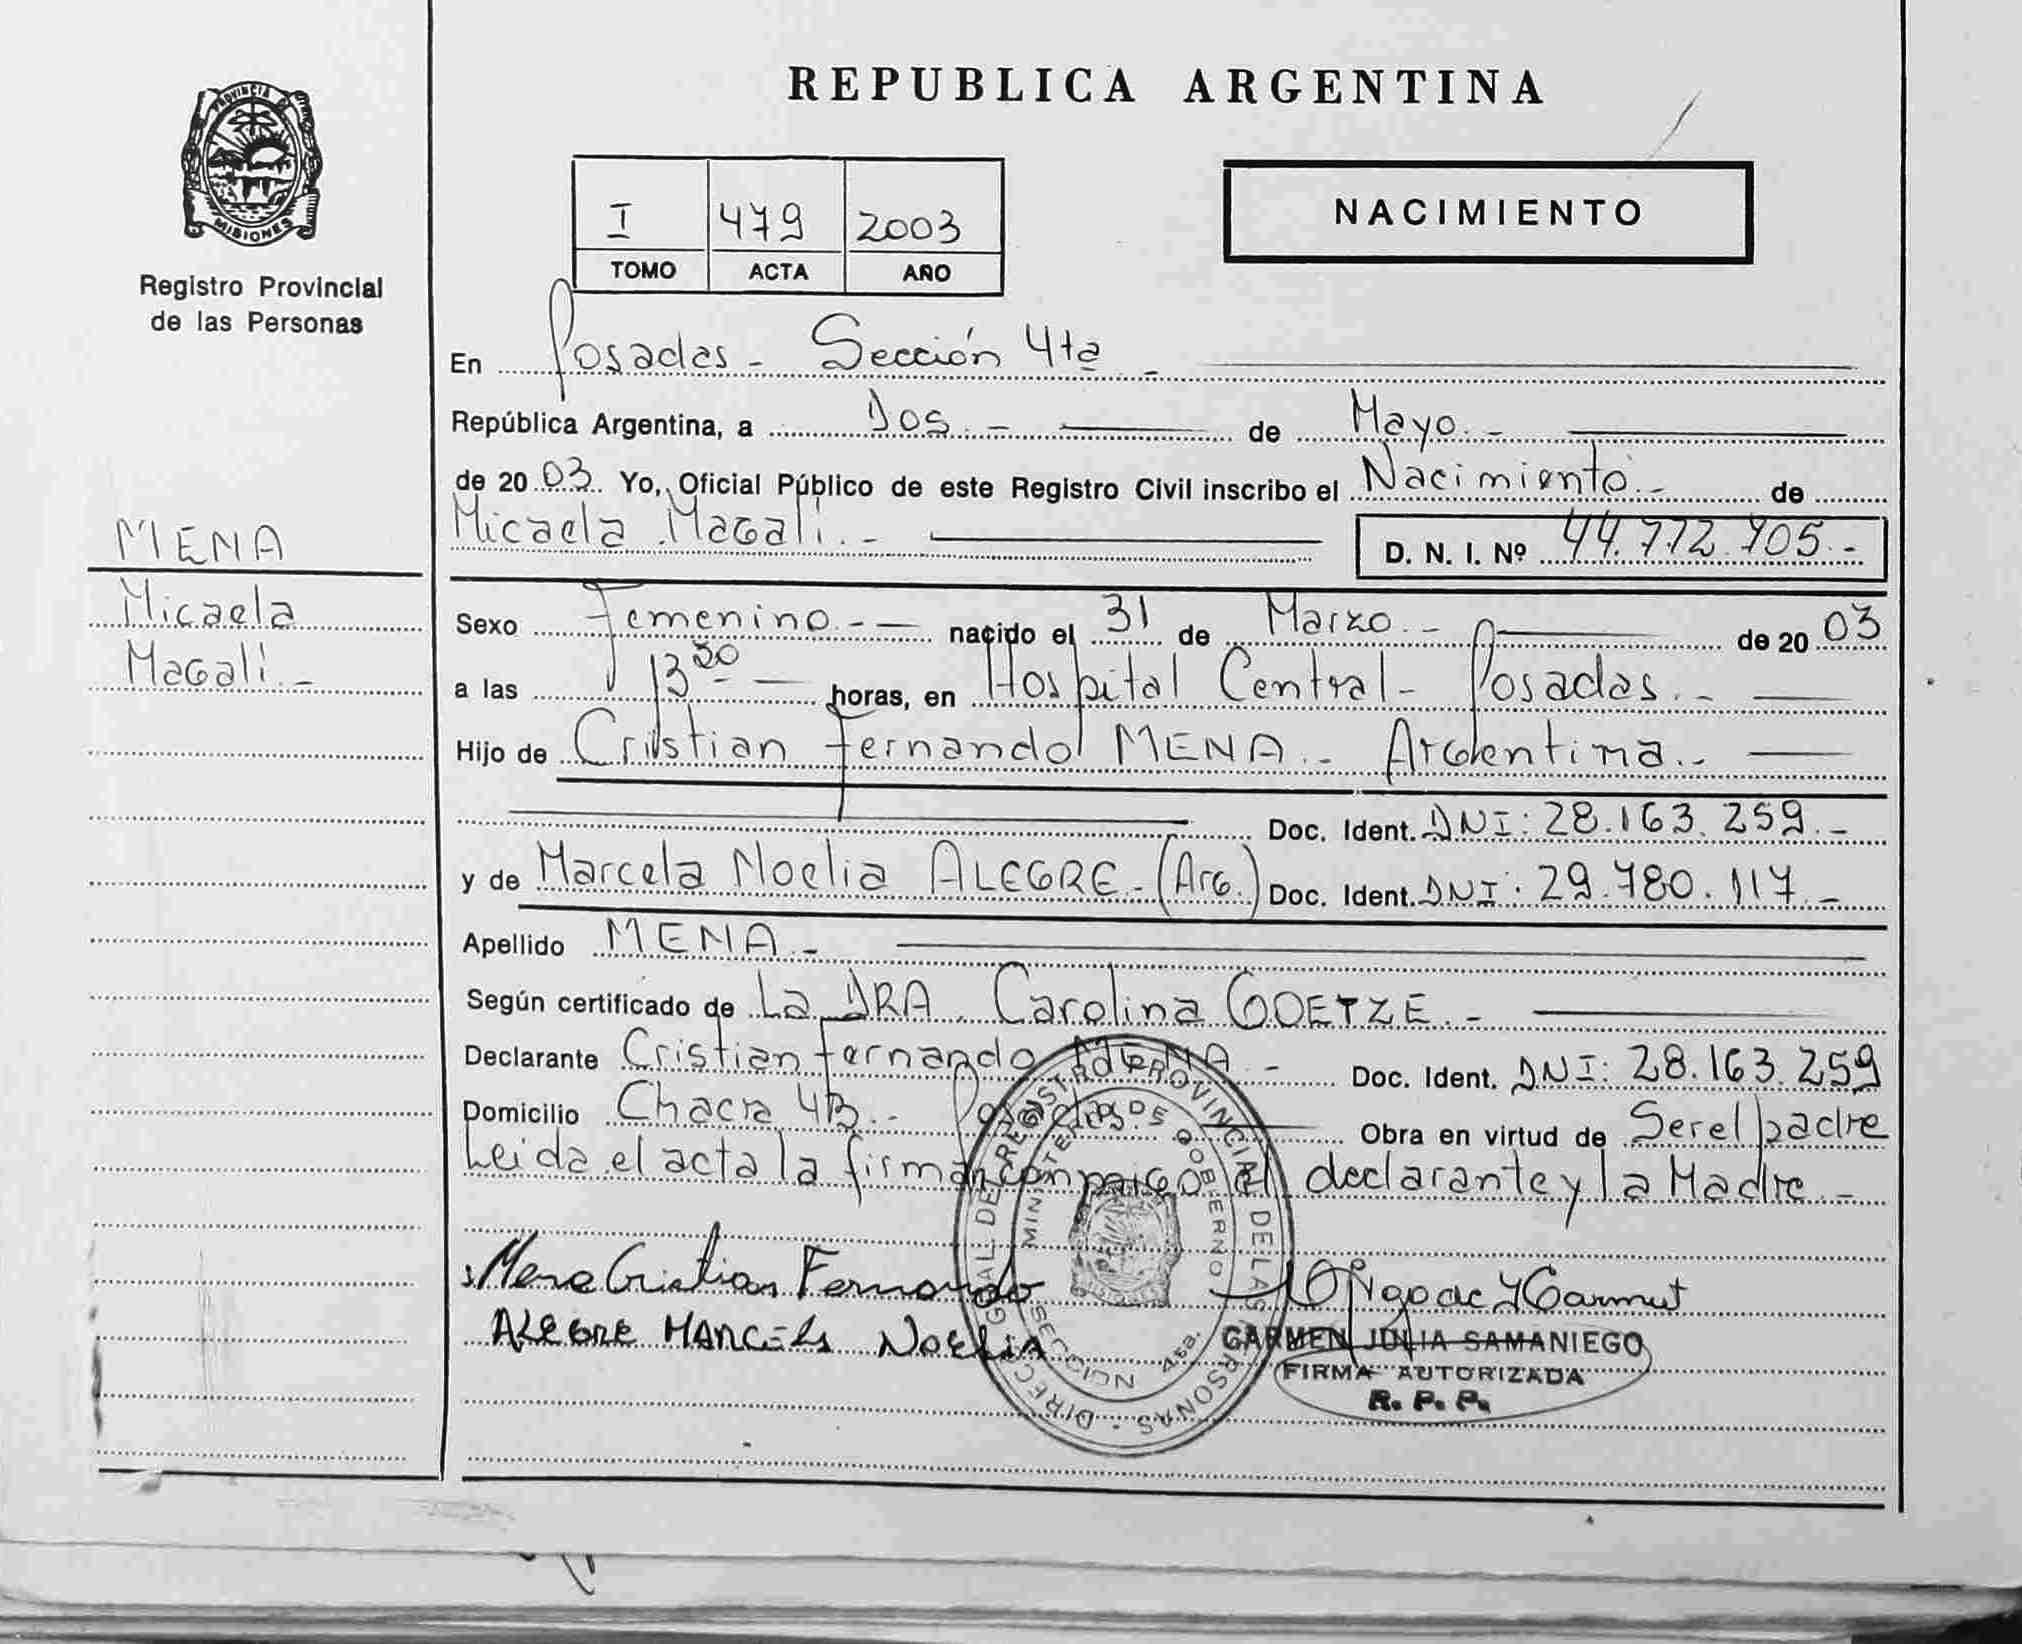 REPUBLICA ARGENTINA
PROVINCIA DE
MISIONES
Registro Provincial
de las Personas
I 479 2003
TOMO ACTA AÑO
NACIMIENTO
En Posadas - Sección 4ta -
República Argentina, a Dos.- de Mayo.-
de 2003 Yo, Oficial Público de este Registro Civil inscribo el Nacimiento.- de
Micaela Magalí.- D. N. I. Nº 44.772.705.-
MENA
Micaela
Magalí.-
Sexo Femenino.-- nacido el 31 de Marzo.- de 2003
a las 13 30 - horas, en Hospital Central - Posadas.-
Hijo de Cristian Fernando MENA.- Argentina.-
Doc. Ident. DNI: 28.163.259.-
y de Marcela Noelia ALEGRE.- (Arg.) Doc. Ident. DNI: 29.780.117.-
Apellido MENA.-
Según certificado de La DRA. Carolina GOETZE.-
Declarante Cristian Fernando MENA.- Doc. Ident. DNI: 28.163.259
Domicilio Chacra 43.- Posadas.- Obra en virtud de Ser el padre
Leida el acta la firman conmigo el declarante y la Madre.-
Mena Cristian Fernando
ALEGRE MARCELA NOELIA
CARMEN JULIA SAMANIEGO
FIRMA AUTORIZADA
R. P. P.
DIRECC GRAL. DE REGISTRO PROVINCIAL DE LAS PERSONAS -
MINISTERIO DE GOBIERNO
SECCION 4ta.